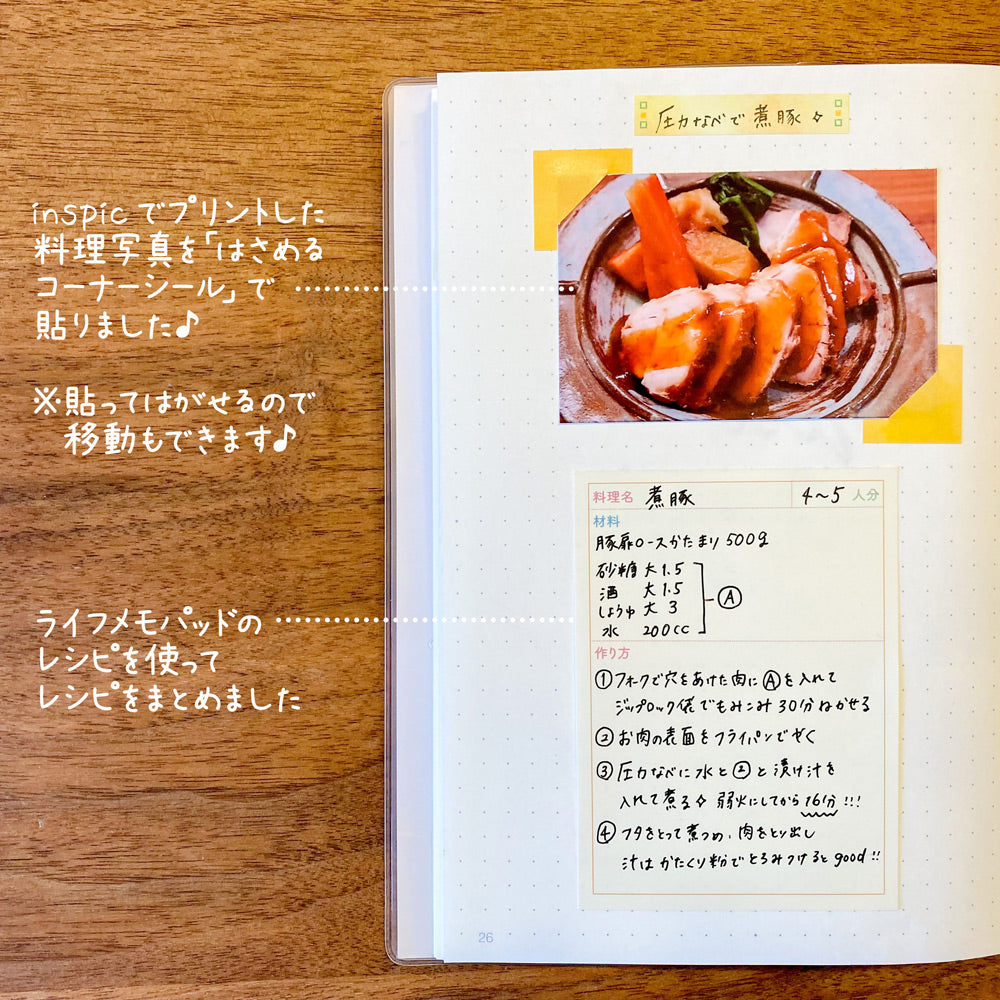 inspicでプリントした
料理写真を「はさめる
コーナーシール」で
貼りました♪
※貼ってはがせるので
移動もできます♪
ライフメモパッドの
レシピを使って
レシピをまとめました
圧力なべで煮豚✧
料理名 煮豚 4〜5 人分
材料
豚肩ロースかたまり 500g
砂糖 大1.5
酒 大1.5
しょうゆ 大3
水 200cc
Ⓐ
作り方
①フォークで穴をあけた肉にⒶを入れて
ジップロック袋でもみこみ30分ねかせる
②お肉の表面をフライパンでやく
③圧力なべに水と②と漬け汁を
入れて煮る✧ 弱火にしてから16分!!!
④フタをとって煮つめ、肉をとり出し
汁はかたくり粉でとろみつけるとgood!!
26